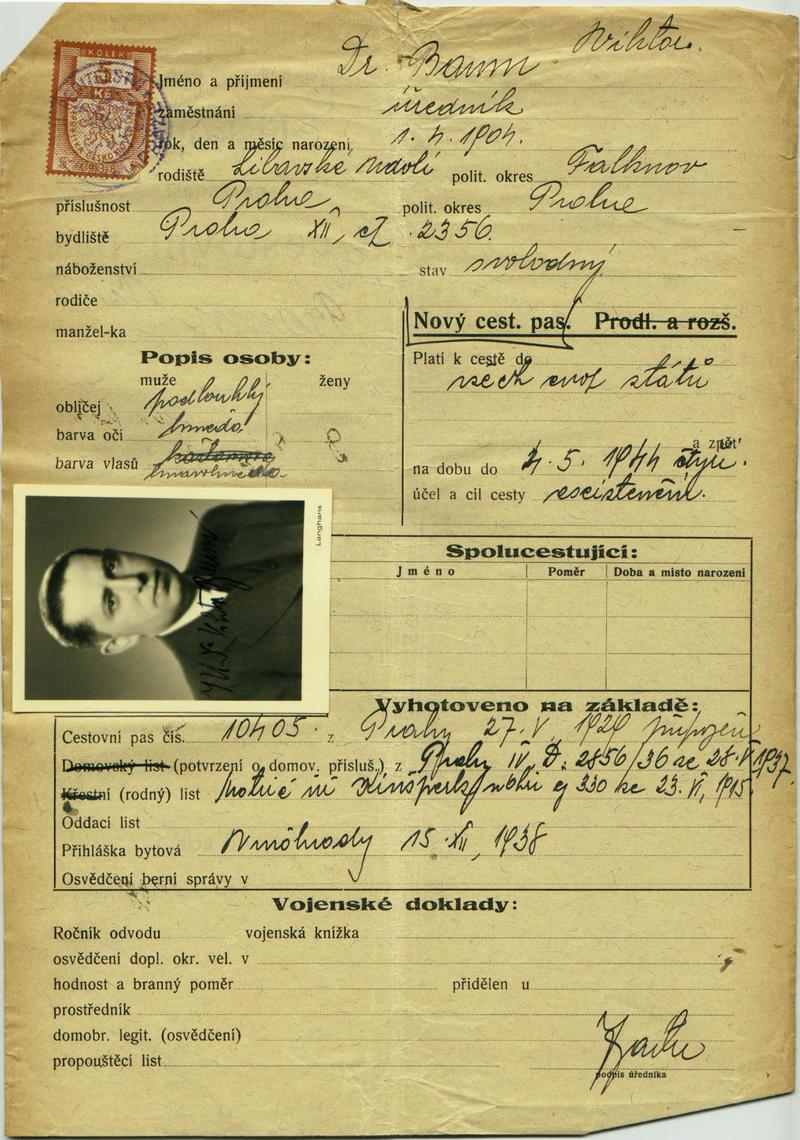 KOLEK
5
Kč
Jméno a příjmení Dr. Baum Wiktor.
zaměstnání úředník
rok, den a měsíc narození 1. 4. 1904.
rodiště Libavské údolí polit. okres Falknov
příslušnost Praha polit. okres Praha
bydliště Praha XII, čj. 2356.
náboženství stav svobodný
rodiče
manžel-ka
Nový cest. pas. Prodl. a rozš.
Popis osoby:
muže ženy
obličej podlouhlý
barva očí hnědá
barva vlasů kaštanová
tmavohnědá
Platí k cestě do
všech států
a zpět
na dobu do 4. 5. 1944
účel a cíl cesty
Langhans
Spolucestující:
Jméno Poměr Doba a místo narození
Vyhotoveno na základě:
Cestovní pas čís. 10405. z Prahy 27. V. 1929
Domovský list (potvrzení o domov. přísluš.) z Prahy IV, D: 2856/36 ze 28. V. 1937.
Křestní (rodný) list Matrič. úř. Kinšperk n/Ohří čj 330 ze 23. VI, 1915
Oddací list
Přihláška bytová Vinohrady 15. XII, 1938
Osvědčení berní správy v
Vojenské doklady:
Ročník odvodu vojenská knížka
osvědčení dopl. okr. vel. v
hodnost a branný poměr přidělen u
prostředník
domobr. legit. (osvědčení)
propouštěcí list
podpis úředníka